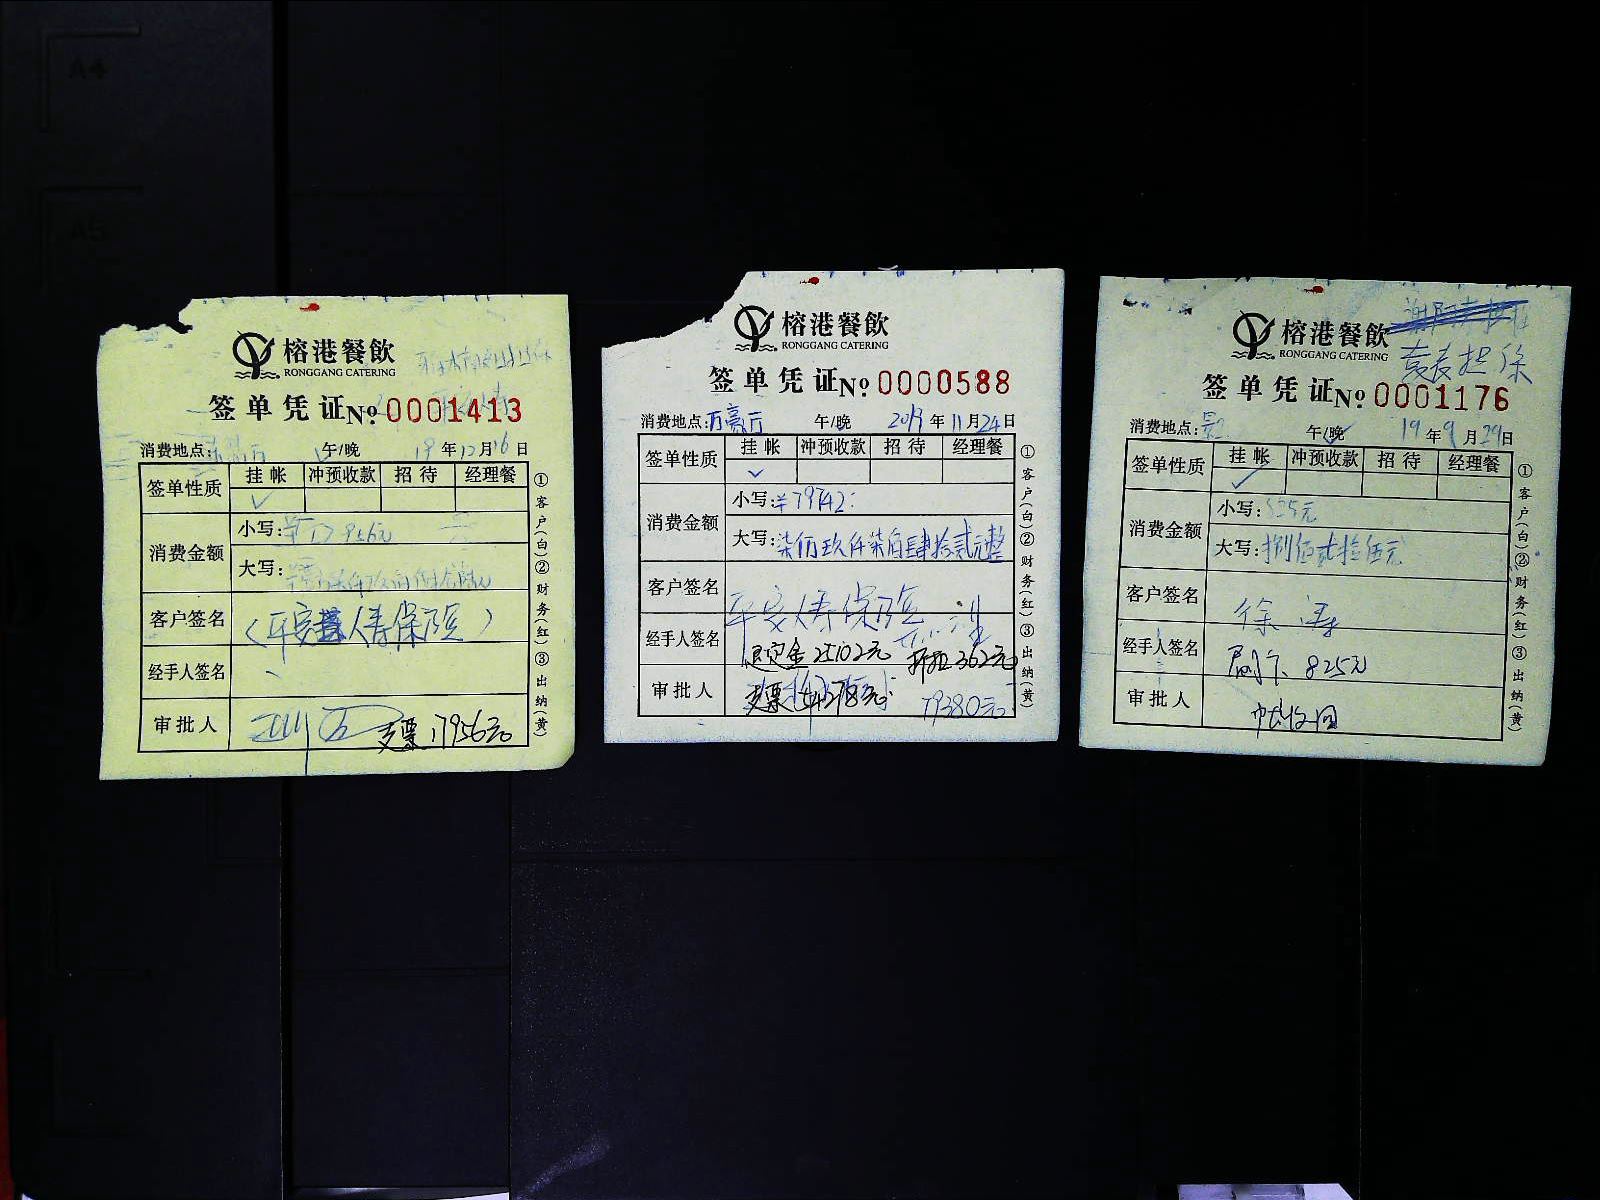 榕港餐飲
RONGGANG CATERING
签单凭证 No 0001413
消费地点: 午/晚 19年12月16日
签单性质 挂帐 冲预收款 招待 经理餐
✓
消费金额 小写:
大写:
客户签名 (平安人寿保险)
经手人签名
审批人 支票17956元
①客户(白)②财务(红)③出纳(黄)
榕港餐飲
RONGGANG CATERING
签单凭证 No 0000588
消费地点:万豪厅 午/晚 2019年11月24日
签单性质 挂帐 冲预收款 招待 经理餐
✓
消费金额 小写:¥79742:
大写:柒万玖仟柒佰肆拾贰元整
客户签名 平安人寿保险
经手人签名 退定金25102元 折扣362元
审批人 支票 54278元 79380元
①客户(白)②财务(红)③出纳(黄)
榕港餐飲
RONGGANG CATERING
签单凭证 No 0001176
消费地点: 午/晚 19年9月29日
签单性质 挂帐 冲预收款 招待 经理餐
✓
消费金额 小写:825元
大写:捌佰贰拾伍元
客户签名 徐涛
经手人签名 825元
审批人
①客户(白)②财务(红)③出纳(黄)